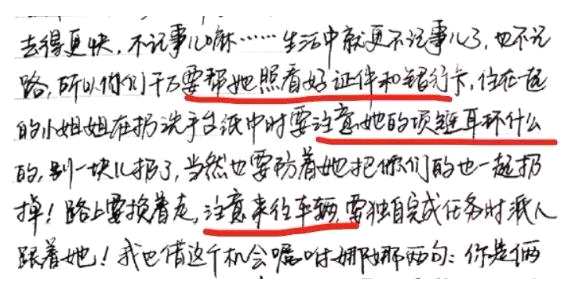 去得更快，不记事儿嘛……生活中就更不记事儿了，也不记
路，所以你们千万要帮她照看好证件和银行卡，住在一起
的小姐姐在扔洗手台纸巾时要注意她的项链耳环什么
的，别一块儿扔了，当然也要防着她把你们的也一起扔
掉！路上要挨着走，注意来往车辆，要独自完成任务时派人
跟着她！我也借这个机会嘱咐娜娜两句：你是俩